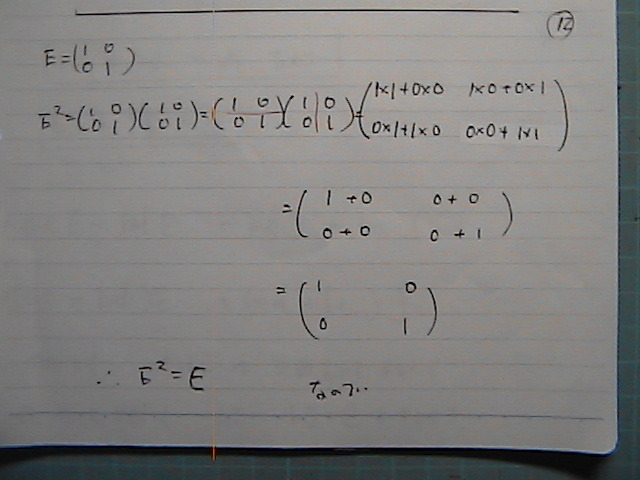 ⑫
E=(1 0
0 1)
E²=(1 0
0 1)(1 0
0 1)=(1 0
0 1)(1 0
0 1)=(1×1+0×0 1×0+0×1
0×1+1×0 0×0+1×1)
=(1+0 0+0
0+0 0+1)
=(1 0
0 1)
∴ E²=E